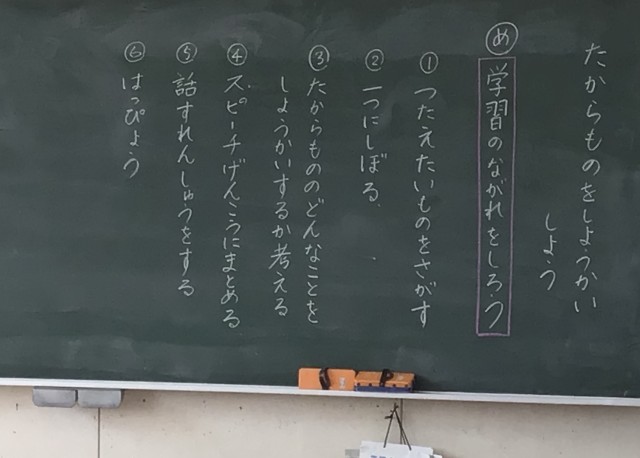 たからものをしょうかい
しよう
め 学習のながれをしろう
① つたえたいものをさがす
② 一つにしぼる。
③ たからもののどんなことを
しょうかいするか考える
④ スピーチげんこうにまとめる
⑤ 話すれんしゅうをする
⑥ はっぴょう